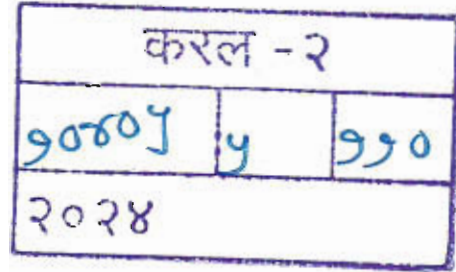 करल - २
१०४०५ ५ ११०
२०२४